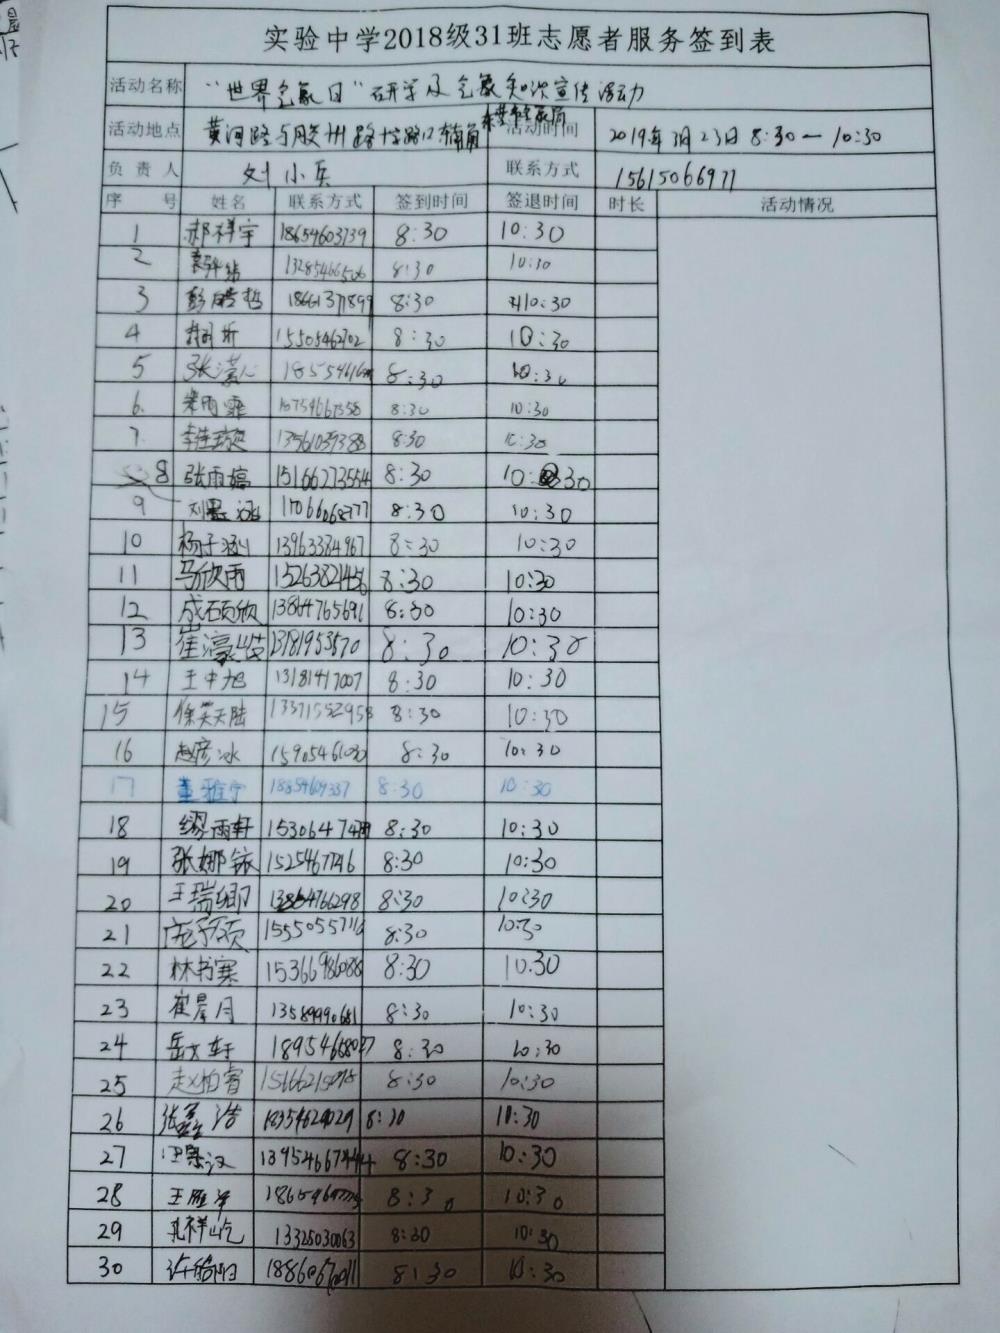 实验中学2018级31班志愿者服务签到表
活动名称 "世界气象日"研学及气象知识宣传活动
活动地点 黄河路与胶州路十字路口东南角 活动时间 2019年3月23日 8:30—10:30
负责人 刘小兵 联系方式 15615066977
序号 姓名 联系方式 签到时间 签退时间 时长 活动情况
1 郝祥宇 18654603739 8:30 10:30
2 8:30 10:30
3 彭皓哲 18661371899 8:30 10:30
4 15505462702 8:30 10:30
5 张滢心 8:30 10:30
6 8:30 10:30
7 13561039388 8:30 10:30
8 张雨婷 15166273554 8:30 10:30
9 17066068777 8:30 10:30
10 杨子涵 13963384967 8:30 10:30
11 马欣雨 15263821456 8:30 10:30
12 成硕欣 13864765691 8:30 10:30
13 崔濠岐 13781953570 8:30 10:30
14 王中旭 13181417007 8:30 10:30
15 徐笑天陆 13371552958 8:30 10:30
16 赵彦冰 15905461030 8:30 10:30
17 董雅宁 18854609337 8:30 10:30
18 缪雨轩 8:30 10:30
19 张娜铱 1525467746 8:30 10:30
20 王瑞卿 13864766298 8:30 10:30
21 庞予颀 15550557116 8:30 10:30
22 林书寒 15366986088 8:30 10:30
23 崔晨月 13589990681 8:30 10:30
24 岳文轩 8:30 10:30
25 赵柏睿 8:30 10:30
26 张鑫浩 18354629029 8:30 10:30
27 8:30 10:30
28 8:30 10:30
29 孔祥屹 13325030063 8:30 10:30
30 8:30 10:30